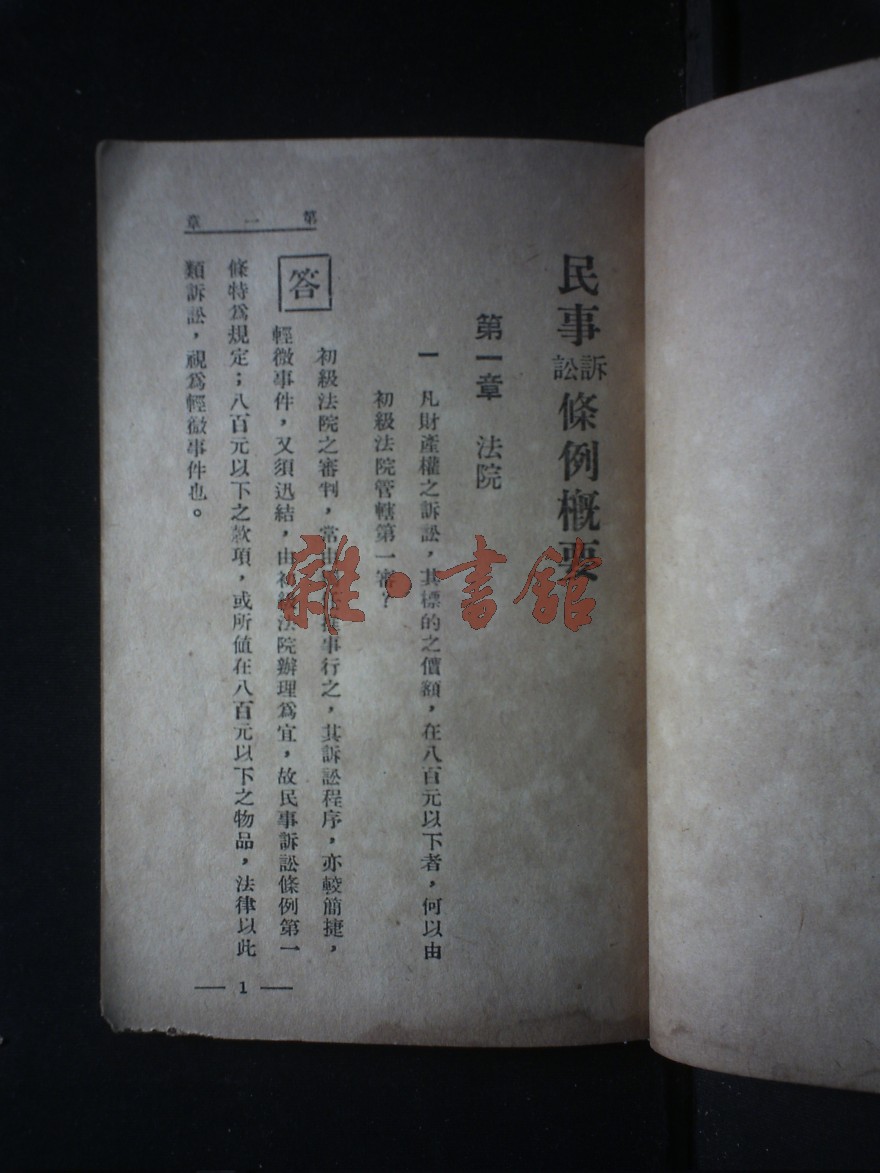 民事訴訟條例概要
第一章 法院
一 凡財產權之訴訟，其標的之價額，在八百元以下者，何以由
初級法院管轄第一審？
答
初級法院之審判，常由 推事行之，其訴訟程序，亦較簡捷，
輕微事件，又須迅結，由初級法院辦理爲宜，故民事訴訟條例第一
條特爲規定；八百元以下之款項，或所値在八百元以下之物品，法律以此
類訴訟，視爲輕微事件也。
第一章
— 1 —
雜·書館